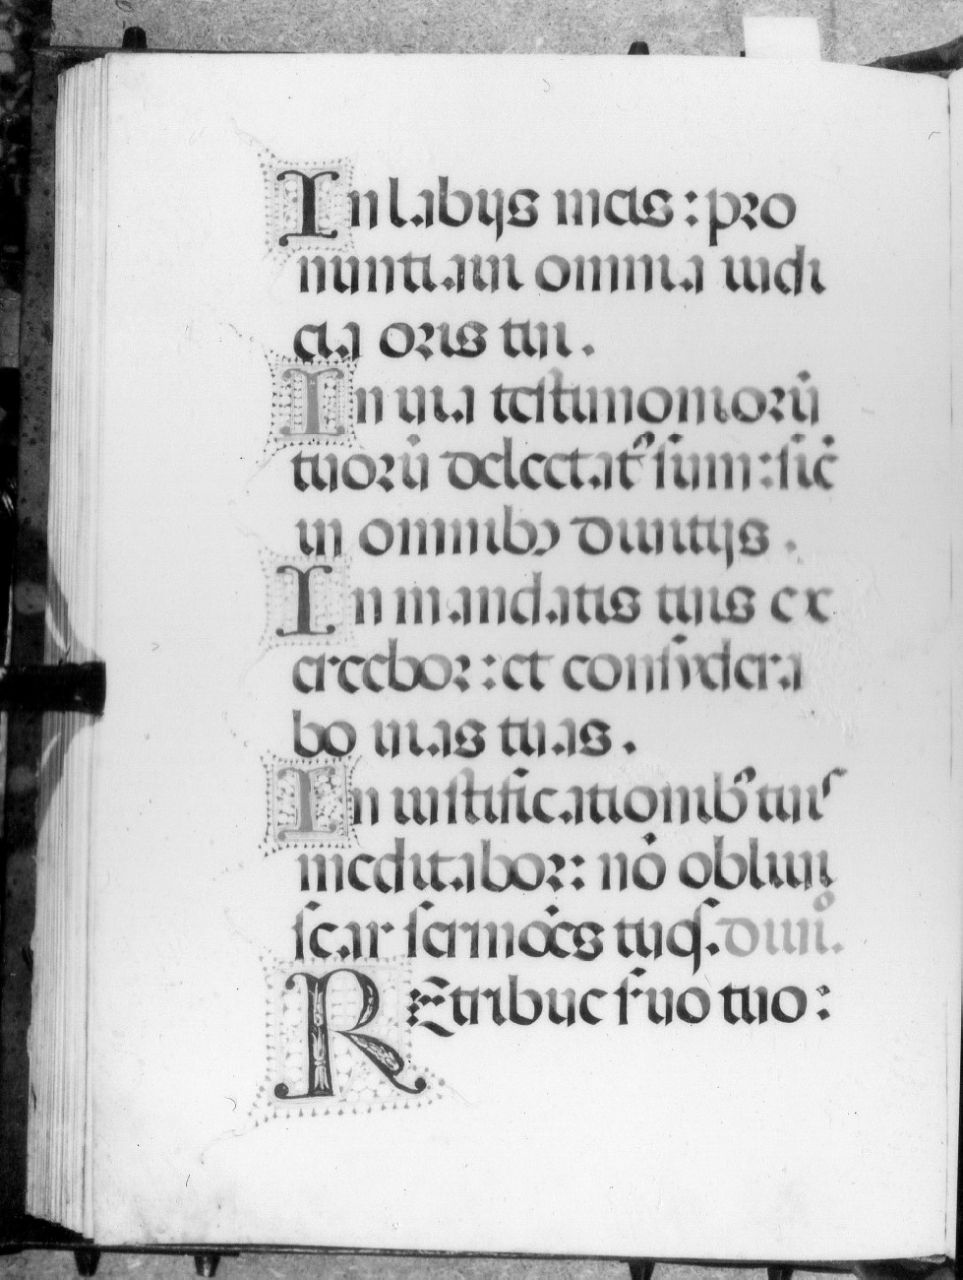 In labijs meis: pro
nuntiaui omnia iudi
cia oris tui.
In uia testimonioru᷈
tuoru᷈ delectat᷒ sum: sic᷒
in omnibꝰ diuitijs.
In mandatis tuis ex
ercebor: et considera
bo uias tuas.
In iustificationib᷒ tuis
meditabor: nō obliui
scar sermōes tuos. Diui᷒.
REtribue suo tuo: